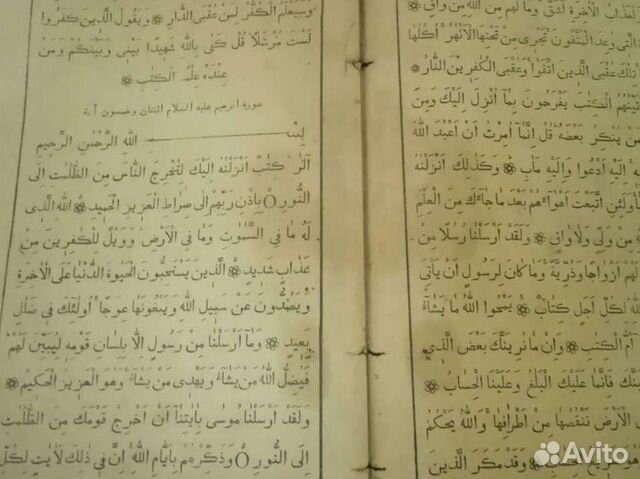 لعذاب الآخرة اشق وما لهم من الله من واق
التى وعد المتقون تجرى من تحتها الانهر اكلها
تلك عقبى الذين اتقوا وعقبى الكفرين النار
تينهم الكتب يفرحون بما انزل اليك ومن
من ينكر بعضه قل انما امرت ان اعبد الله
ه اليه ادعوا واليه ماب وكذلك انزلنه
ولئن اتبعت اهواءهم بعد ما جاءك من العلم
من ولى ولا واق ولقد ارسلنا رسلا من
لهم ازواجا وذرية وما كان لرسول ان يأتى
الله لكل اجل كتاب يمحوا الله ما يشاء
ام الكتب وان ما نرينك بعض الذى
ينك فانما عليك البلغ وعلينا الحساب
الارض ننقصها من اطرافها والله يحكم
وقد مكر الذين
وسيعلم الكفر لمن عقبى الدار ويقول الذين كفروا
لست مرسلا قل كفى بالله شهيدا بينى وبينكم ومن
عنده علم الكتب
سورة ابرهيم عليه السلام اثنتان وخمسون آية
بسم الله الرحمن الرحيم
الر كتب انزلنه اليك لتخرج الناس من الظلمت الى
النور باذن ربهم الى صراط العزيز الحميد الله الذى
له ما فى السموت وما فى الارض وويل للكفرين من
عذاب شديد الذين يستحبون الحيوة الدنيا على الآخرة
ويصدون عن سبيل الله ويبغونها عوجا اولئك فى ضلل
بعيد وما ارسلنا من رسول الا بلسان قومه ليبين لهم
فيضل الله من يشاء ويهدى من يشاء وهو العزيز الحكيم
ولقد ارسلنا موسى باياتنا ان اخرج قومك من الظلمت
الى النور وذكرهم بايام الله ان فى ذلك لايت لكل
Avito